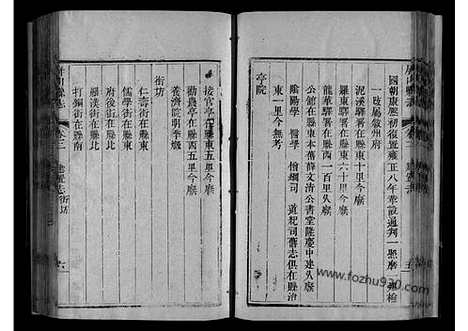 國朝康熙初復置雍正八年裁設通判一照磨一檢
一改屬敘州府
泥溪驛署在縣東十里今廢
羅東驛署在縣東六十里今廢
龍華驛署在縣西一百里久廢
公館在縣東本薛文清公書堂隆慶中建久廢
陰陽學 醫學 僧綱司 道紀司舊志俱在縣治
東一里今無考
亭院
接官亭在縣東五里今廢
勸農亭在縣西五里今廢
養濟院明季燬
街坊
仁壽街在縣東
府後街在縣北
儒學街在縣東
打銅街在縣南
屏山縣志
卷二
建置志
街坊
六
www.fozhu920.com